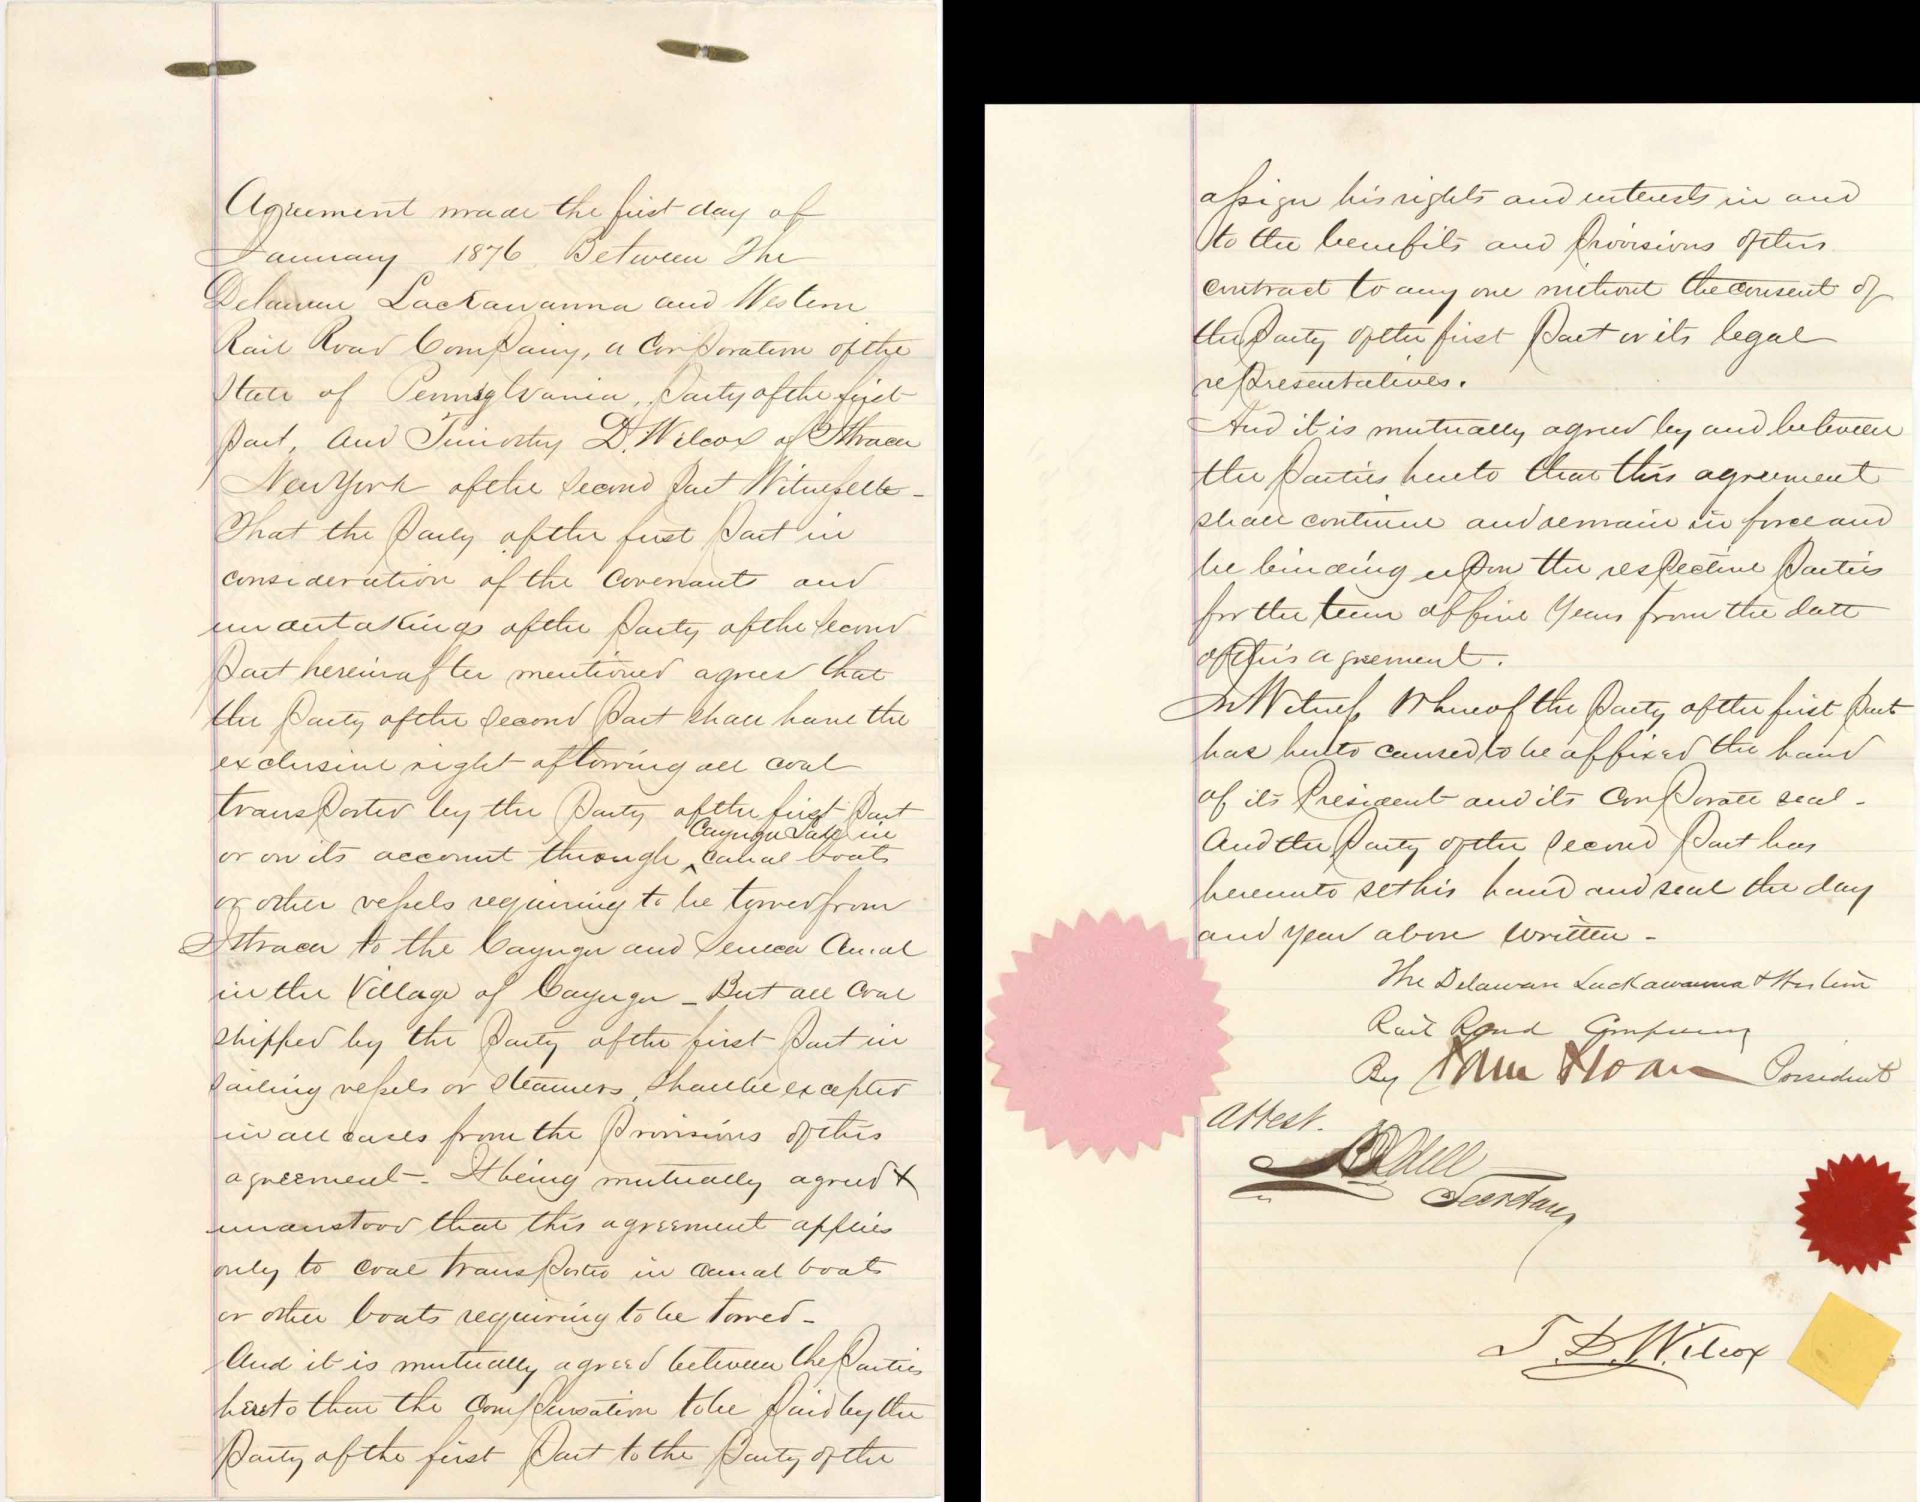 Agreement made the first day of
January 1876. Between The
Delaware Lackawanna and Western
Rail Road Company, a Corporation of the
State of Pennsylvania, Party of the first
part, and Timothy D. Wilcox of Ithaca
New York of the Second Part Witnesseth -
That the Party of the first Part in
consideration of the Covenants and
undertakings of the Party of the Second
Part hereinafter mentioned agrees that
the Party of the Second Part shall have the
exclusive right of towing all coal
transported by the Party of the first Part
Cayuga Lake in
or on its account through ‸ canal boats
or other vessels requiring to be towed from
Ithaca to the Cayuga and Seneca Canal
in the Village of Cayuga - But all Coal
shipped by the Party of the first Part in
sailing vessels or steamers, shall be excepted
in all cases from the Provisions of this
agreement - It being mutually agreed &
understood that this agreement applies
only to coal transported in canal boats
or other boats requiring to be towed -
And it is mutually agreed between the Parties
hereto that the Compensation to be Paid by the
Party of the first Part to the Party of the
assign his rights and interests in and
to the benefits and Provisions of this
contract to any one without the consent of
the Party of the first Part or its legal
representatives.
And it is mutually agreed by and between
the Parties hereto that this agreement
shall continue and remain in force and
be binding upon the respective Parties
for the term of five Years from the date
of this agreement.
In Witness Whereof the Party of the first Part
has hereto caused to be affixed the hand
of its President and its Corporate seal -
And the Party of the Second Part has
hereunto set his hand and seal the day
and year above written -
The Delaware Lackawanna & Western
Rail Road Company
By Sam Sloan President
Attest.
Odell
Secretary
T. D. Wilcox